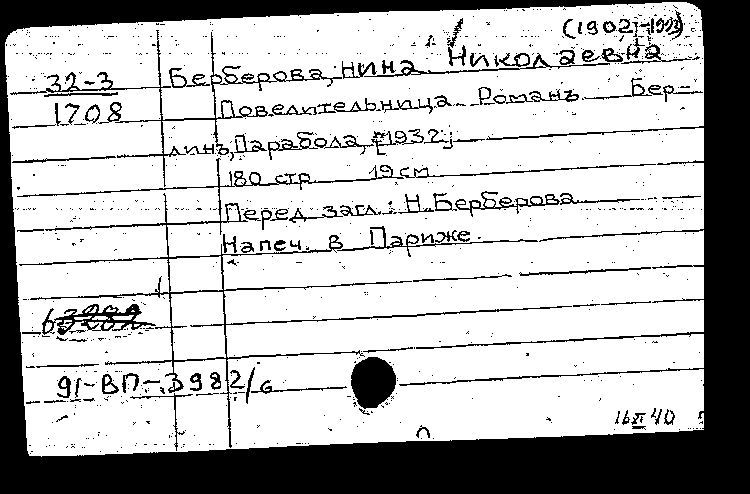 (1902-1993)
32-3 Берберова, Нина Николаевна
1708 Повелительница. Романъ. Бер-
линъ, Парабола, [1932.]
180 стр. 19 см.
Перед загл.: Н. Берберова
Напеч. в Париже.
91-ВП-3982/6
16 XI 40